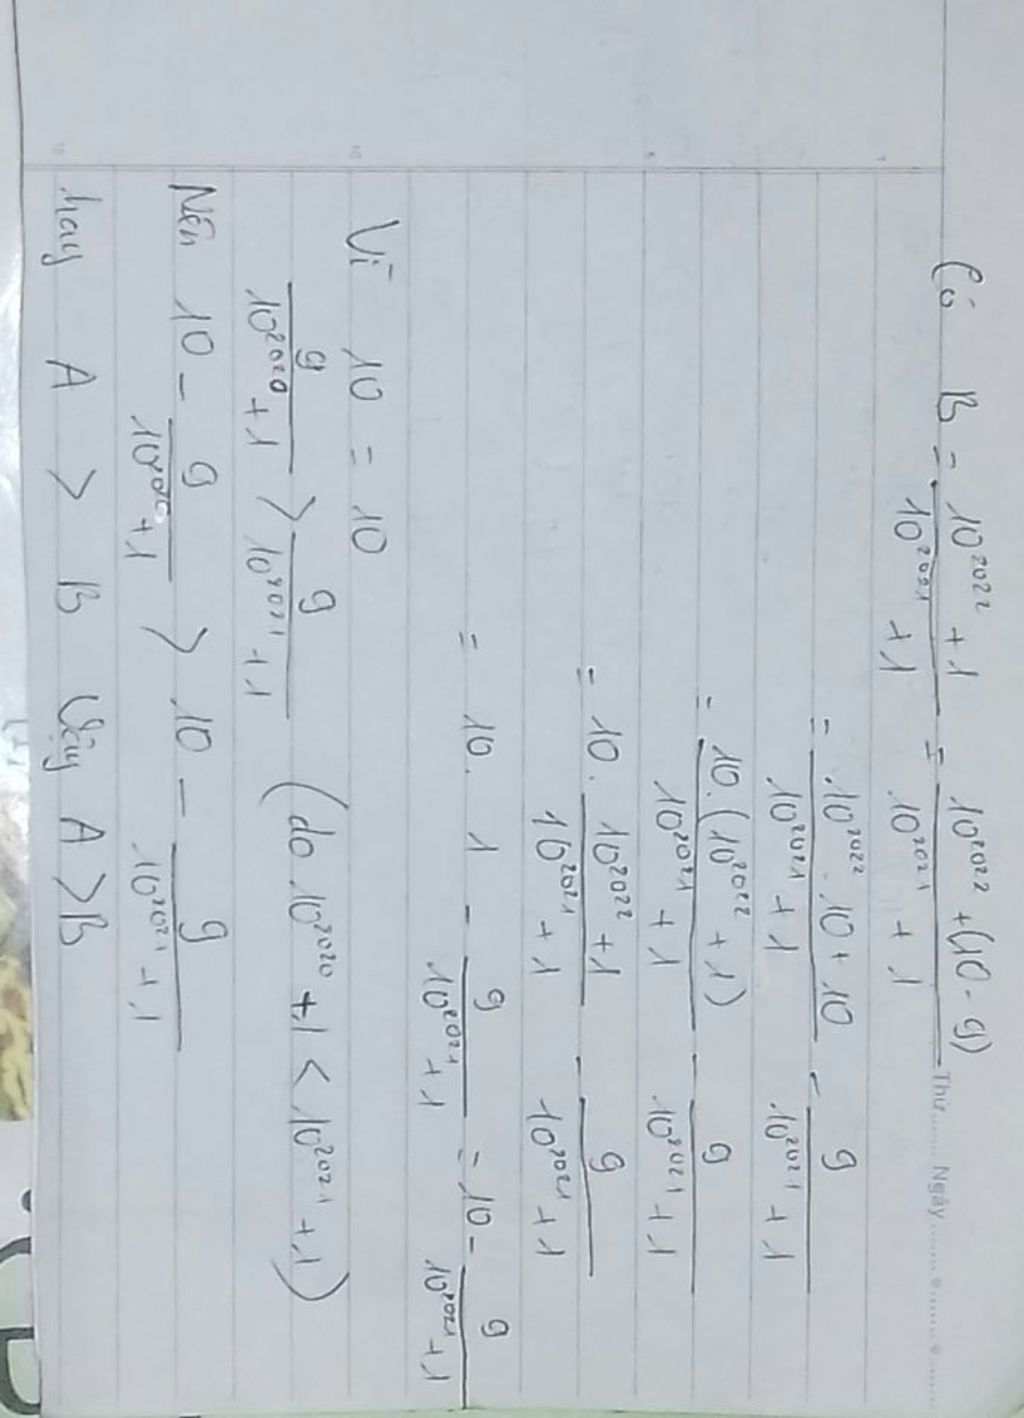 Thứ........ Ngày........
Có B = \frac{10^{2022} + 1}{10^{2021} + 1} = \frac{10^{2022} + (10 - 9)}{10^{2021} + 1}
= \frac{10^{2022} . 10 + 10}{10^{2021} + 1} - \frac{9}{10^{2021} + 1}
= \frac{10 . (10^{2022} + 1)}{10^{2021} + 1} - \frac{9}{10^{2021} + 1}
= 10 . \frac{10^{2022} + 1}{10^{2021} + 1} - \frac{9}{10^{2021} + 1}
= 10 . 1 - \frac{9}{10^{2021} + 1} = 10 - \frac{9}{10^{2021} + 1}
Vì 10 = 10
\frac{9}{10^{2020} + 1} > \frac{9}{10^{2021} + 1} (do 10^{2020} + 1 < 10^{2021} + 1)
Nên 10 - \frac{9}{10^{2020} + 1} > 10 - \frac{9}{10^{2021} + 1}
hay A > B Vậy A > B